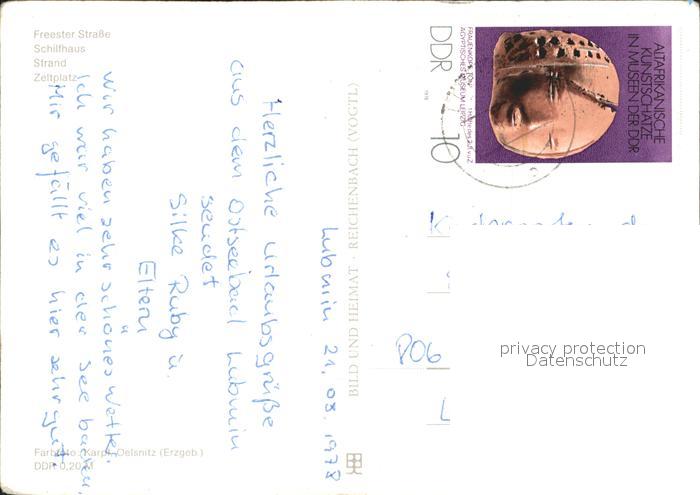 Freester Straße
Schilfhaus
Strand
Zeltplatz
Lubmin 21.08.1978
Herzliche Urlaubsgrüße
aus dem Ostseebad Lubmin
sendet
Silke Ruby u.
Eltern
Wir haben sehr schönes Wetter.
Ich war viel in der See baden.
Mir gefällt es hier sehr gut.
Farbfoto: Karpf, Oelsnitz (Erzgeb.)
DDR 0,20 M
BILD UND HEIMAT · REICHENBACH (VOGTL)
ALTAFRIKANISCHE
KUNSTSCHÄTZE
IN MUSEEN DER DDR
FRAUENKOPF, TON
ÄGYPTISCHES MUSEUM LEIPZIG
DDR
10
privacy protection
Datenschutz